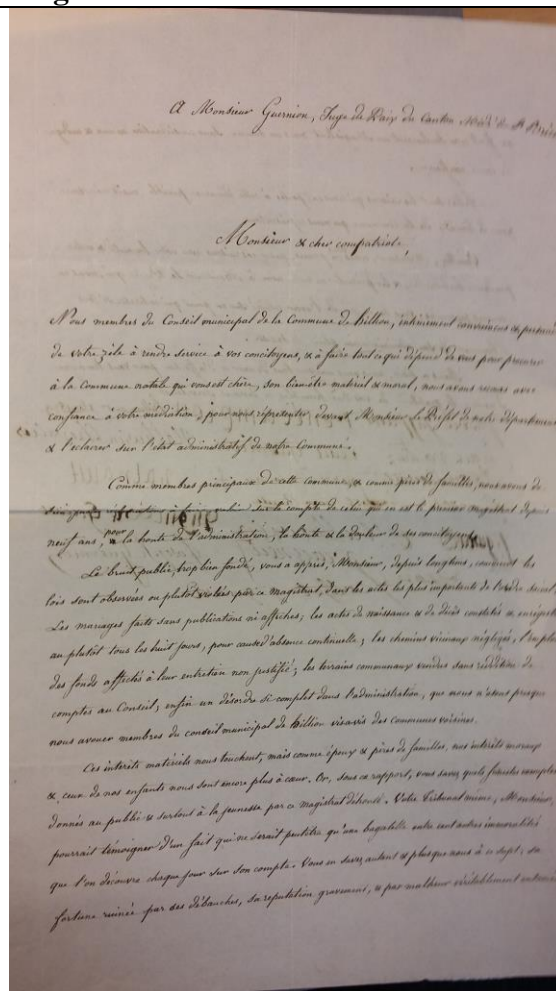 A Monsieur Guernion, Juge de Paix du Canton Midi de St Brieuc
Monsieur & cher compatriote,
Nous membres du Conseil municipal de la Commune de hillion, intimement convaincus &
de votre zèle à rendre service à vos concitoyens, & à faire tout ce qui dépend de vous pour procurer
à la Commune natale qui vous est chère, son bien être matériel & moral, nous avons recours avec
confiance à votre médiation, pour nous représenter devant Monsieur Le Préfet de notre département
& l'éclairer sur l'état administratif de notre Commune.
Comme membres principaux de cette commune, & comme pères de familles, nous avons de
sur le compte de celui qui en est le premier magistrat depuis
neuf ans, pour la honte de l'administration, la honte & la douleur de ses concitoyens.
Le bruit public, trop bien fondé, vous a appris, Monsieur, depuis longtems, comment les
lois sont observées ou plutôt violées par ce magistrat, dans les actes les plus importants de l'ordre social.
Les mariages faits sans publications ni affiches; les actes de naissance & de décès constatés &
au plutôt tous les huit jours, pour cause d'absence continuelle; les chemins vicinaux négligés, l'emploi
des fonds affectés à leur entretien non justifié; les terrains communaux vendus sans reddition de
comptes au Conseil; enfin un désordre si complet dans l'administration, que nous n'osons presque
nous avouer membres du conseil municipal de hillion visavis des communes voisines.
Ces intérêts matériels nous touchent, mais comme époux & pères de familles, nos intérêts moraux
& ceux de nos enfants nous sont encore plus à cœur. Or, sous ce rapport, vous savez quels funestes exemples
donnés au public & surtout à la jeunesse par ce magistrat déhonté. Votre Tribunal même, Monsieur,
pourrait témoigner d'un fait qui ne serait peutêtre qu'une bagatelle entre cent autres immoralités
que l'on découvre chaque jour sur son compte. Vous en savez autant & plus que nous à ce sujet; sa
fortune ruinée par ses débauches, sa réputation gravement, & par malheur véritablement